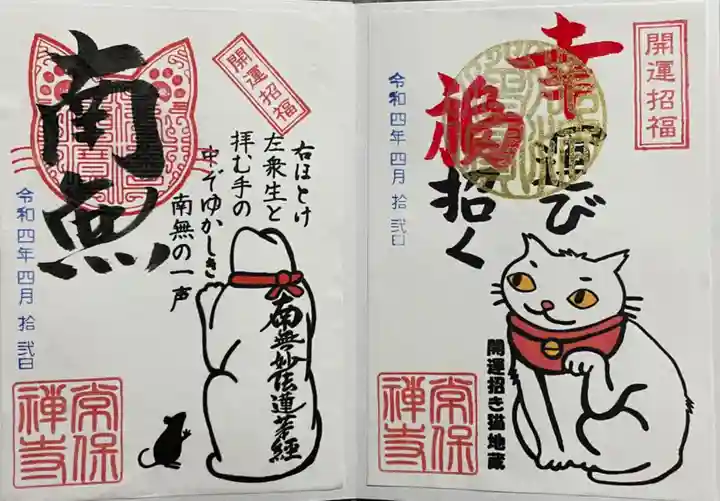 開運招福
幸運び
福招く
令和四年四月拾弐日
開運招き猫地蔵
常保
禅寺
開運招福
南無
右ほとけ
左衆生と
拝む手の
中ぞゆかしき
南無の一声
令和四年四月拾弐日
南無妙法蓮華経
常保
禅寺